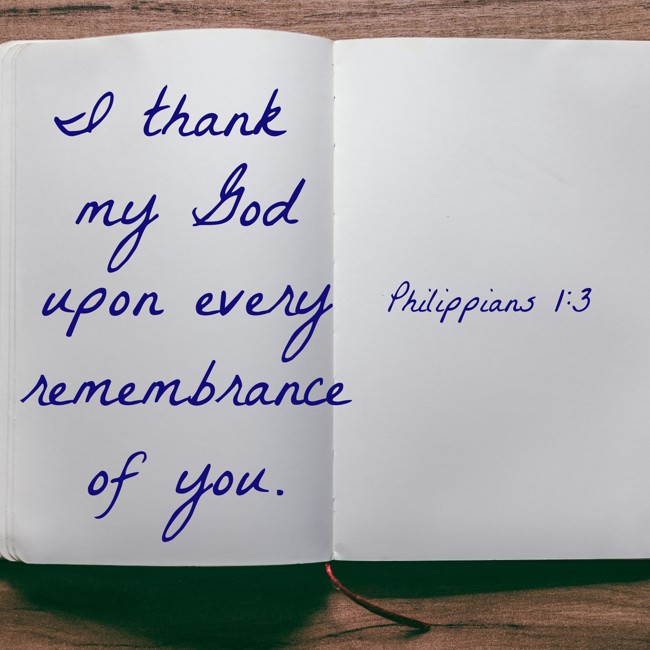 I thank
my God
upon every
remembrance
of you.
Philippians 1:3